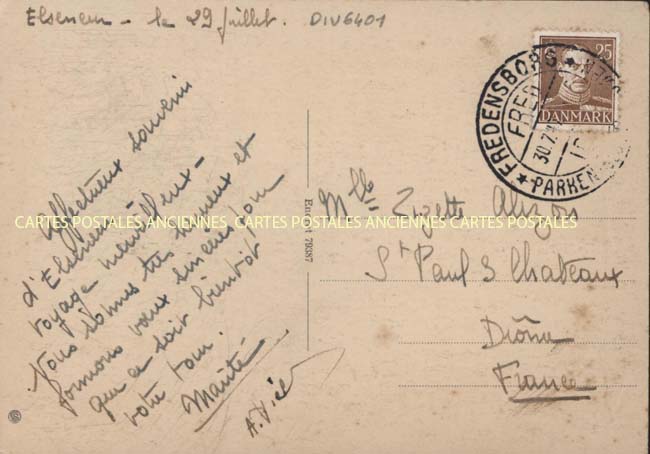 Elseneur - le 29 Juillet. DIV6401
Affectueux souvenir
d'Elseneur.
voyage merveilleux -
Nous sommes très heureux et
formons vœux sincères pour
que ce soit bientôt
votre tour.
Maïté
A.
Eneret 79387
Mlle Zizette
St Paul 3 Chateaux
Drôme
France
25
DANMARK
FREDENSBORG
FRED
30.7.
PARKEN
CARTES POSTALES ANCIENNES CARTES POSTALES ANCIENNES CARTES POSTALES ANCIENNES